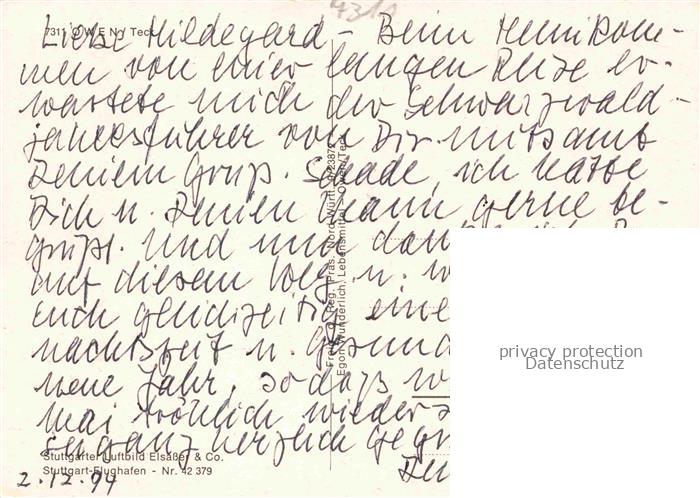 4311
7311 OWEN / Teck
Liebe Hildegard – Beim Heimkom-
men von einer langen Reise er-
wartete mich der Schwarzwald-
jahresführer von Dir mitsamt
Deinem Gruß. Schade, ich hätte
Dich u. Deinen Mann gerne be-
grüßt. Und nun
auf diesem Weg u.
Euch gleichzeitig eine
nachtszeit u. Gesund
neue Jahr, sodaß
Mai fröhlich wieder
ganz herzlich gegr
2.12.94
Freig. d. Reg. Präs. Nord Württ.
Egon Wunderlich, Lebensmittel - Owen/Teck
Stuttgarter Luftbild Elsäßer & Co.
Stuttgart-Flughafen - Nr. 42 379
privacy protection
Datenschutz